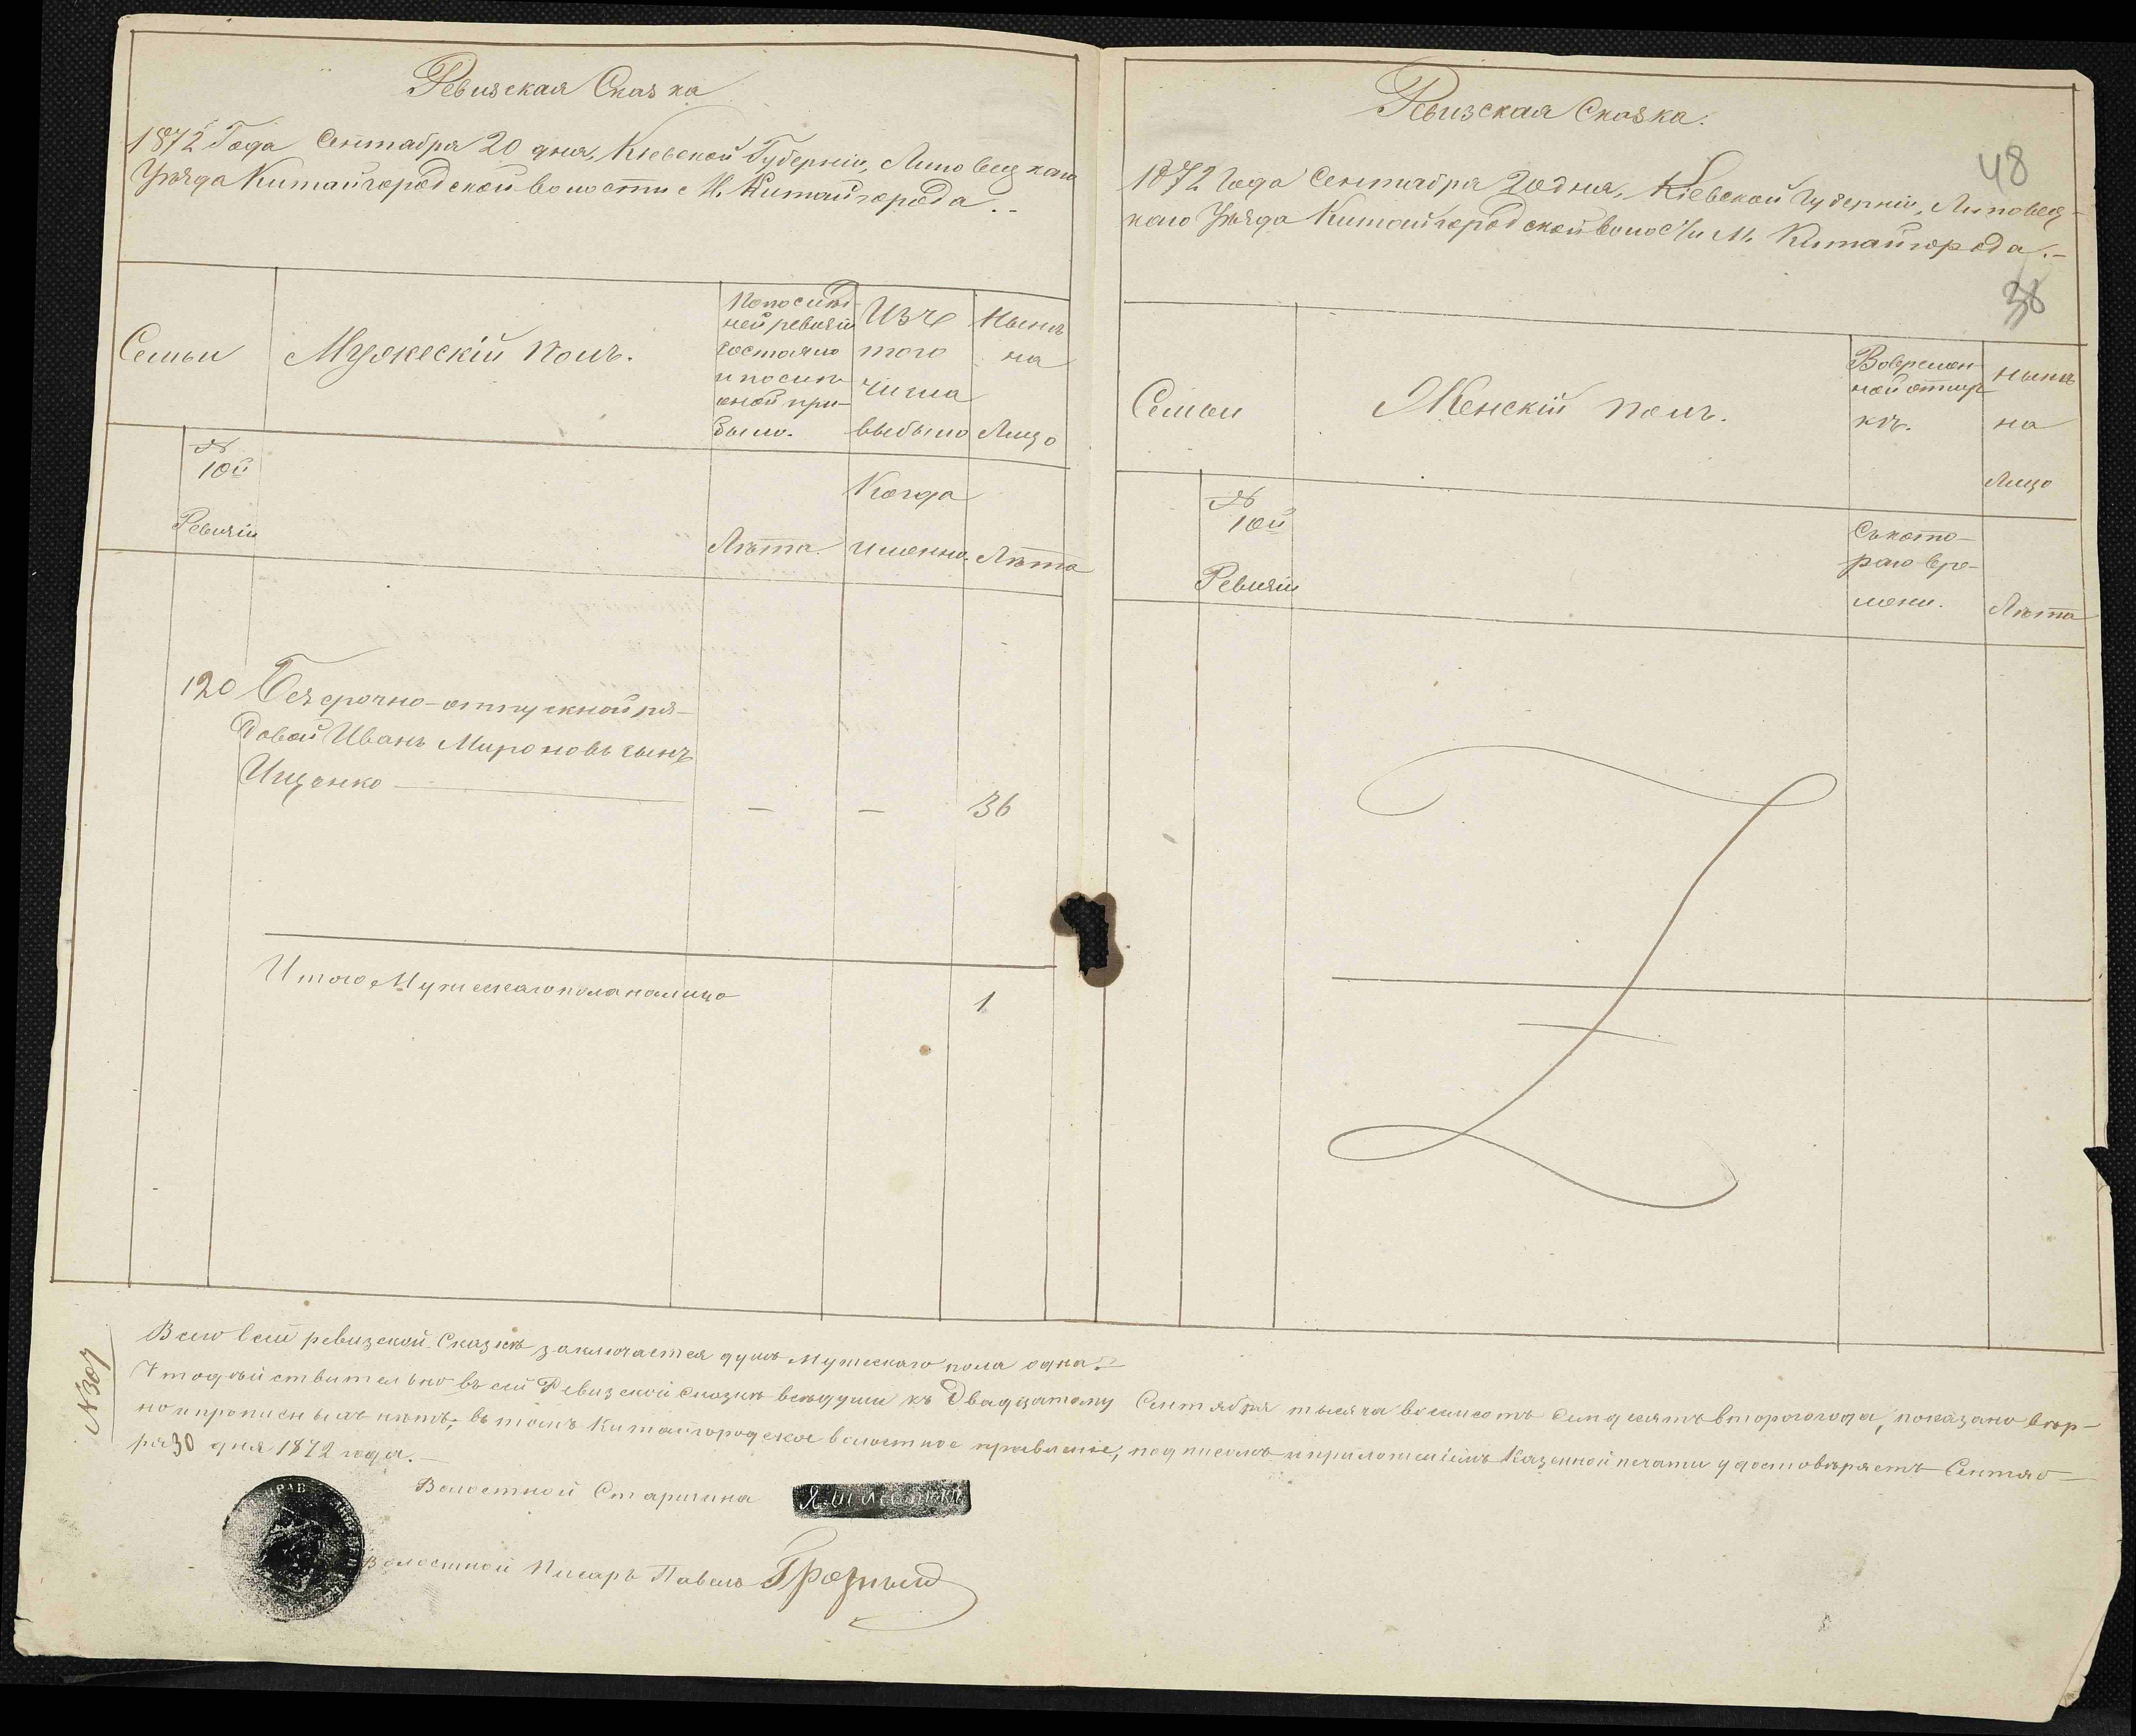 Ревизская Сказка
1872 Года Сентября 20 дня, Кіевской Губерніи, Липовецкаго
Уѣзда Китайгородской волости М. Китайгорода.-
Семьи
Мужескій полъ.
По послѣд-
ней ревизіи
состояло
и послѣ
оной при-
было.
Изъ
того
числа
выбыло
Нынѣ
на
Лицо
№
10й
Ревизіи
Лѣта
Когда
именно.
Лѣта
120 Безсрочно-отпускной ря-
довой Иванъ Мироновъ сынъ
Ищенко
— — 36
Итого Мужескаго пола налицо 1
Ревизская Сказка.
48
1872 Года Сентября 20 дня, Кіевской Губерніи, Липовец-
каго Уѣзда Китайгородской волости М. Китайгорода.-
38
Семьи
Женскій полъ.
Вовремен-
ной отлуч-
кѣ.
Нынѣ
на
Лицо
№
10й
Ревизіи
Съкото-
раго вре-
мени.
Лѣта
№307
Всего въ сей ревизской Сказкѣ заключается душъ мужескаго пола одна.
Что действительно въ сей Ревизской Сказкѣ всѣ души къ Двадцатому Сентября тысяча восемсотъ семдесятъ втораго года, показано вѣр-
но и прописныхъ нѣтъ, въ томъ Китайгородское волостное правленіе, подписомъ и приложеніемъ Казенной печати удостовѣряетъ Сентяб-
ря 30 дня 1872 года.-
Волостной Старшина
Волостной Писарь Павелъ Грозный